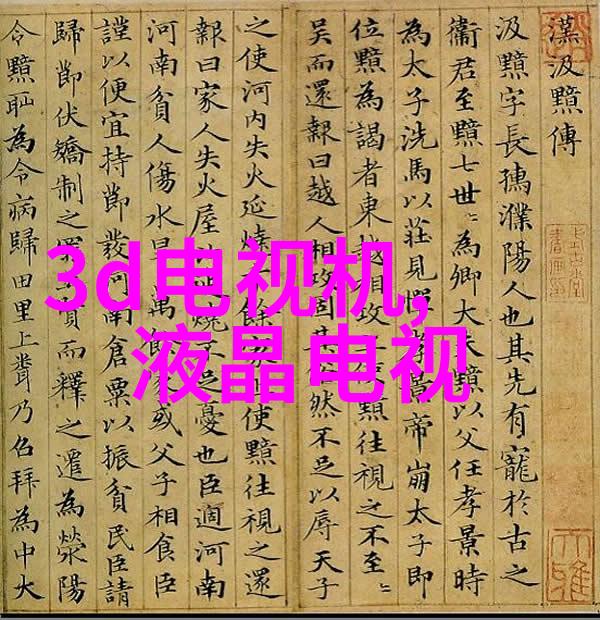 漢汲黯傳
汲黯字長孺濮陽人也其先有寵於古之
衛君至黯七世〻為卿大夫黯以父任孝景時
為太子洗馬以莊見憚孝景帝崩太子即
位黯為謁者東越相攻上使黯往視之不至〻
吳而還報曰越人相攻固其俗然不足以辱天子
之使河内失火延燒千餘家上使黯往視之還
報曰家人失火屋比延燒不足憂也臣過河南
河南貧人傷水旱萬餘家或父子相食臣
謹以便宜持節發河南倉粟以振貧民臣請
歸節伏矯制之罪上賢而釋之遷為滎陽
令黯恥為令病歸田里上聞乃召拜為中大
3d电视机,
液晶电视